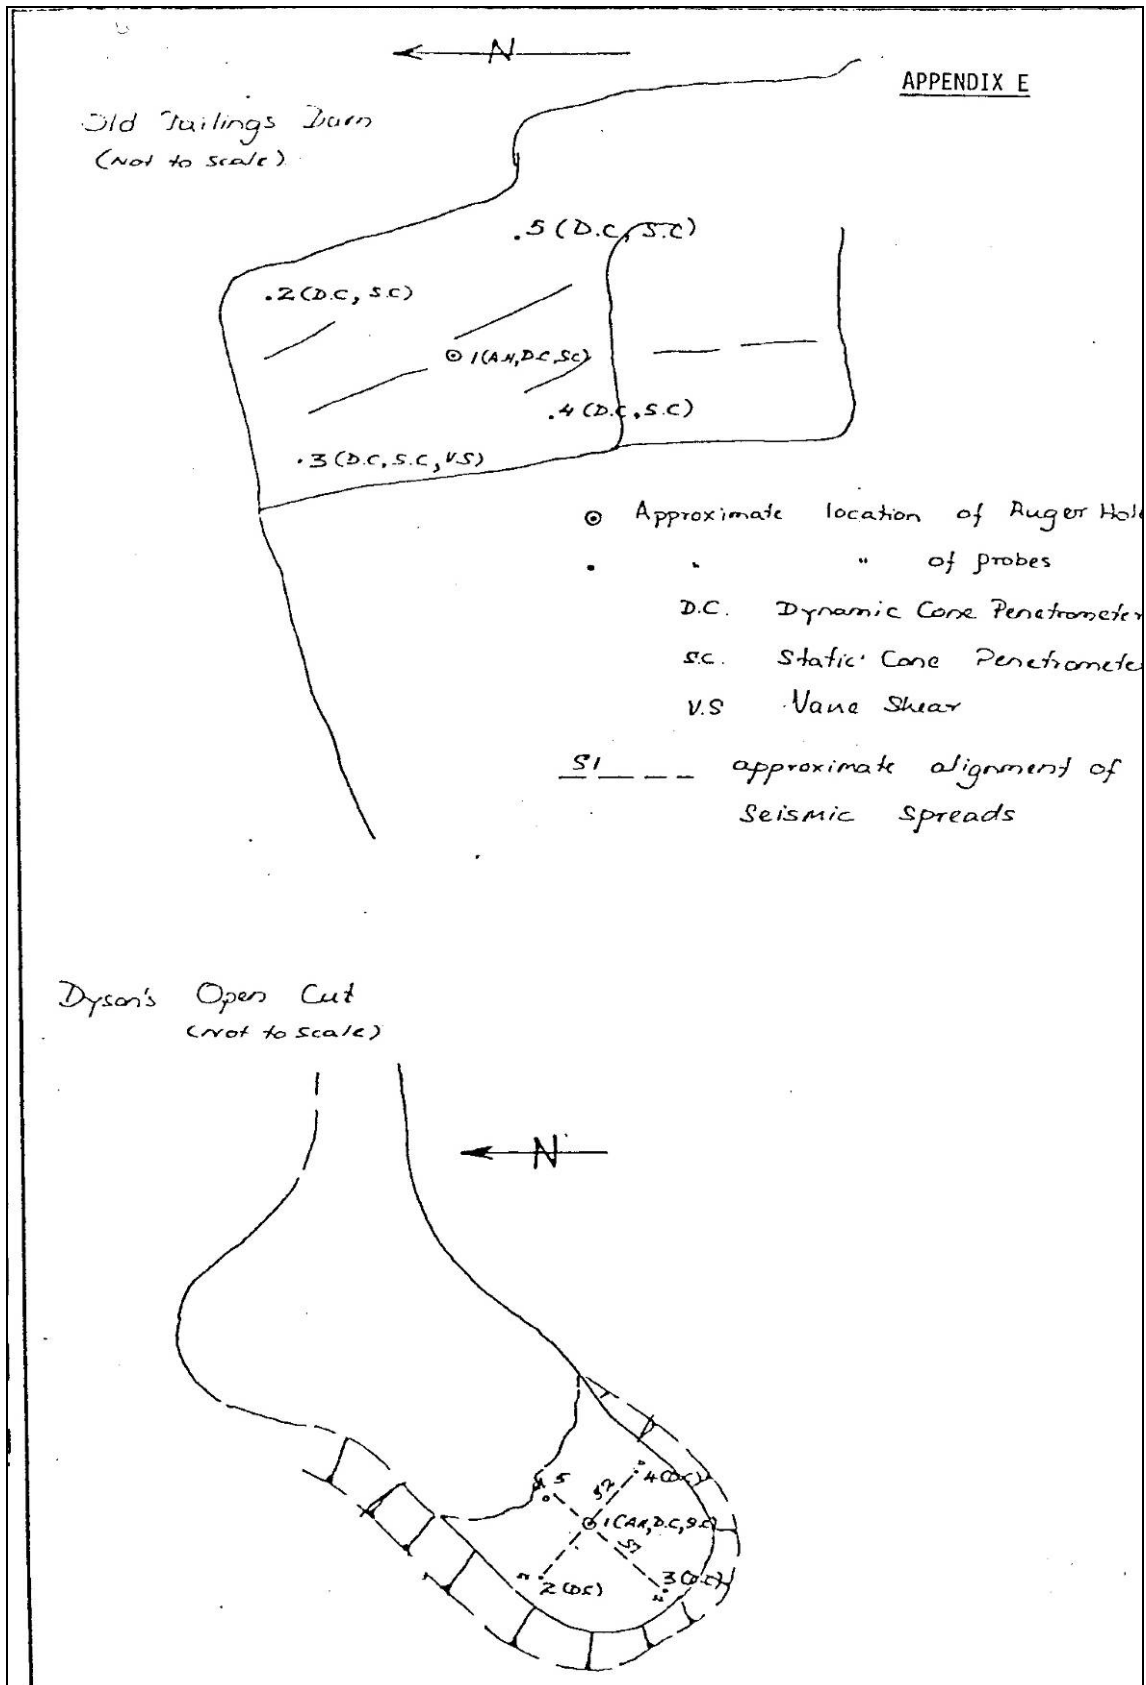 N
APPENDIX E
Old Tailings Dam
(Not to scale)
.5 (D.C, S.C)
.2 (D.C, S.C)
1 (A.H, D.C, S.C)
.4 (D.C, S.C)
.3 (D.C, S.C, V.S)
Approximate location of Auger Hole
" " of probes
D.C. Dynamic Cone Penetrometer
S.C. Static Cone Penetromete
V.S Vane Shear
S1 approximate alignment of
Seismic Spreads
Dyson's Open Cut
(Not to scale)
N
5
S2
4 (D.C)
1 (A.H, D.C, S.C)
S1
2 (D.C)
3 (D.C)